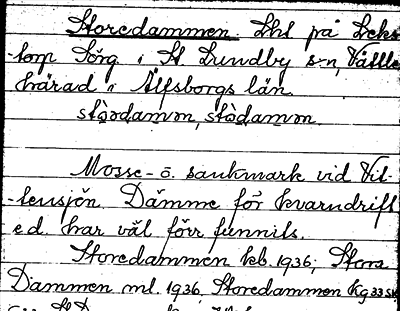 Storedammen. Lht på Leks-
-torp Sörg. i St. Lundby s-n, Vättle
härad i Älfsborgs län.
stòrdamɷn, stòdamɷn.
Mosse- o. sankmark vid Vil-
-lensjön. Dämme för kvarndrift
e.d. har väl förr funnits.
Storedammen kb. 1936; Stora
Dammen ml. 1936. Storedammen Kg 33 sk